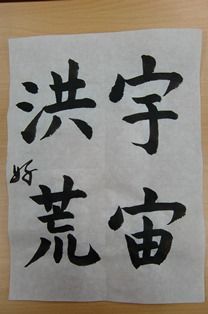 宇宙
洪荒
好